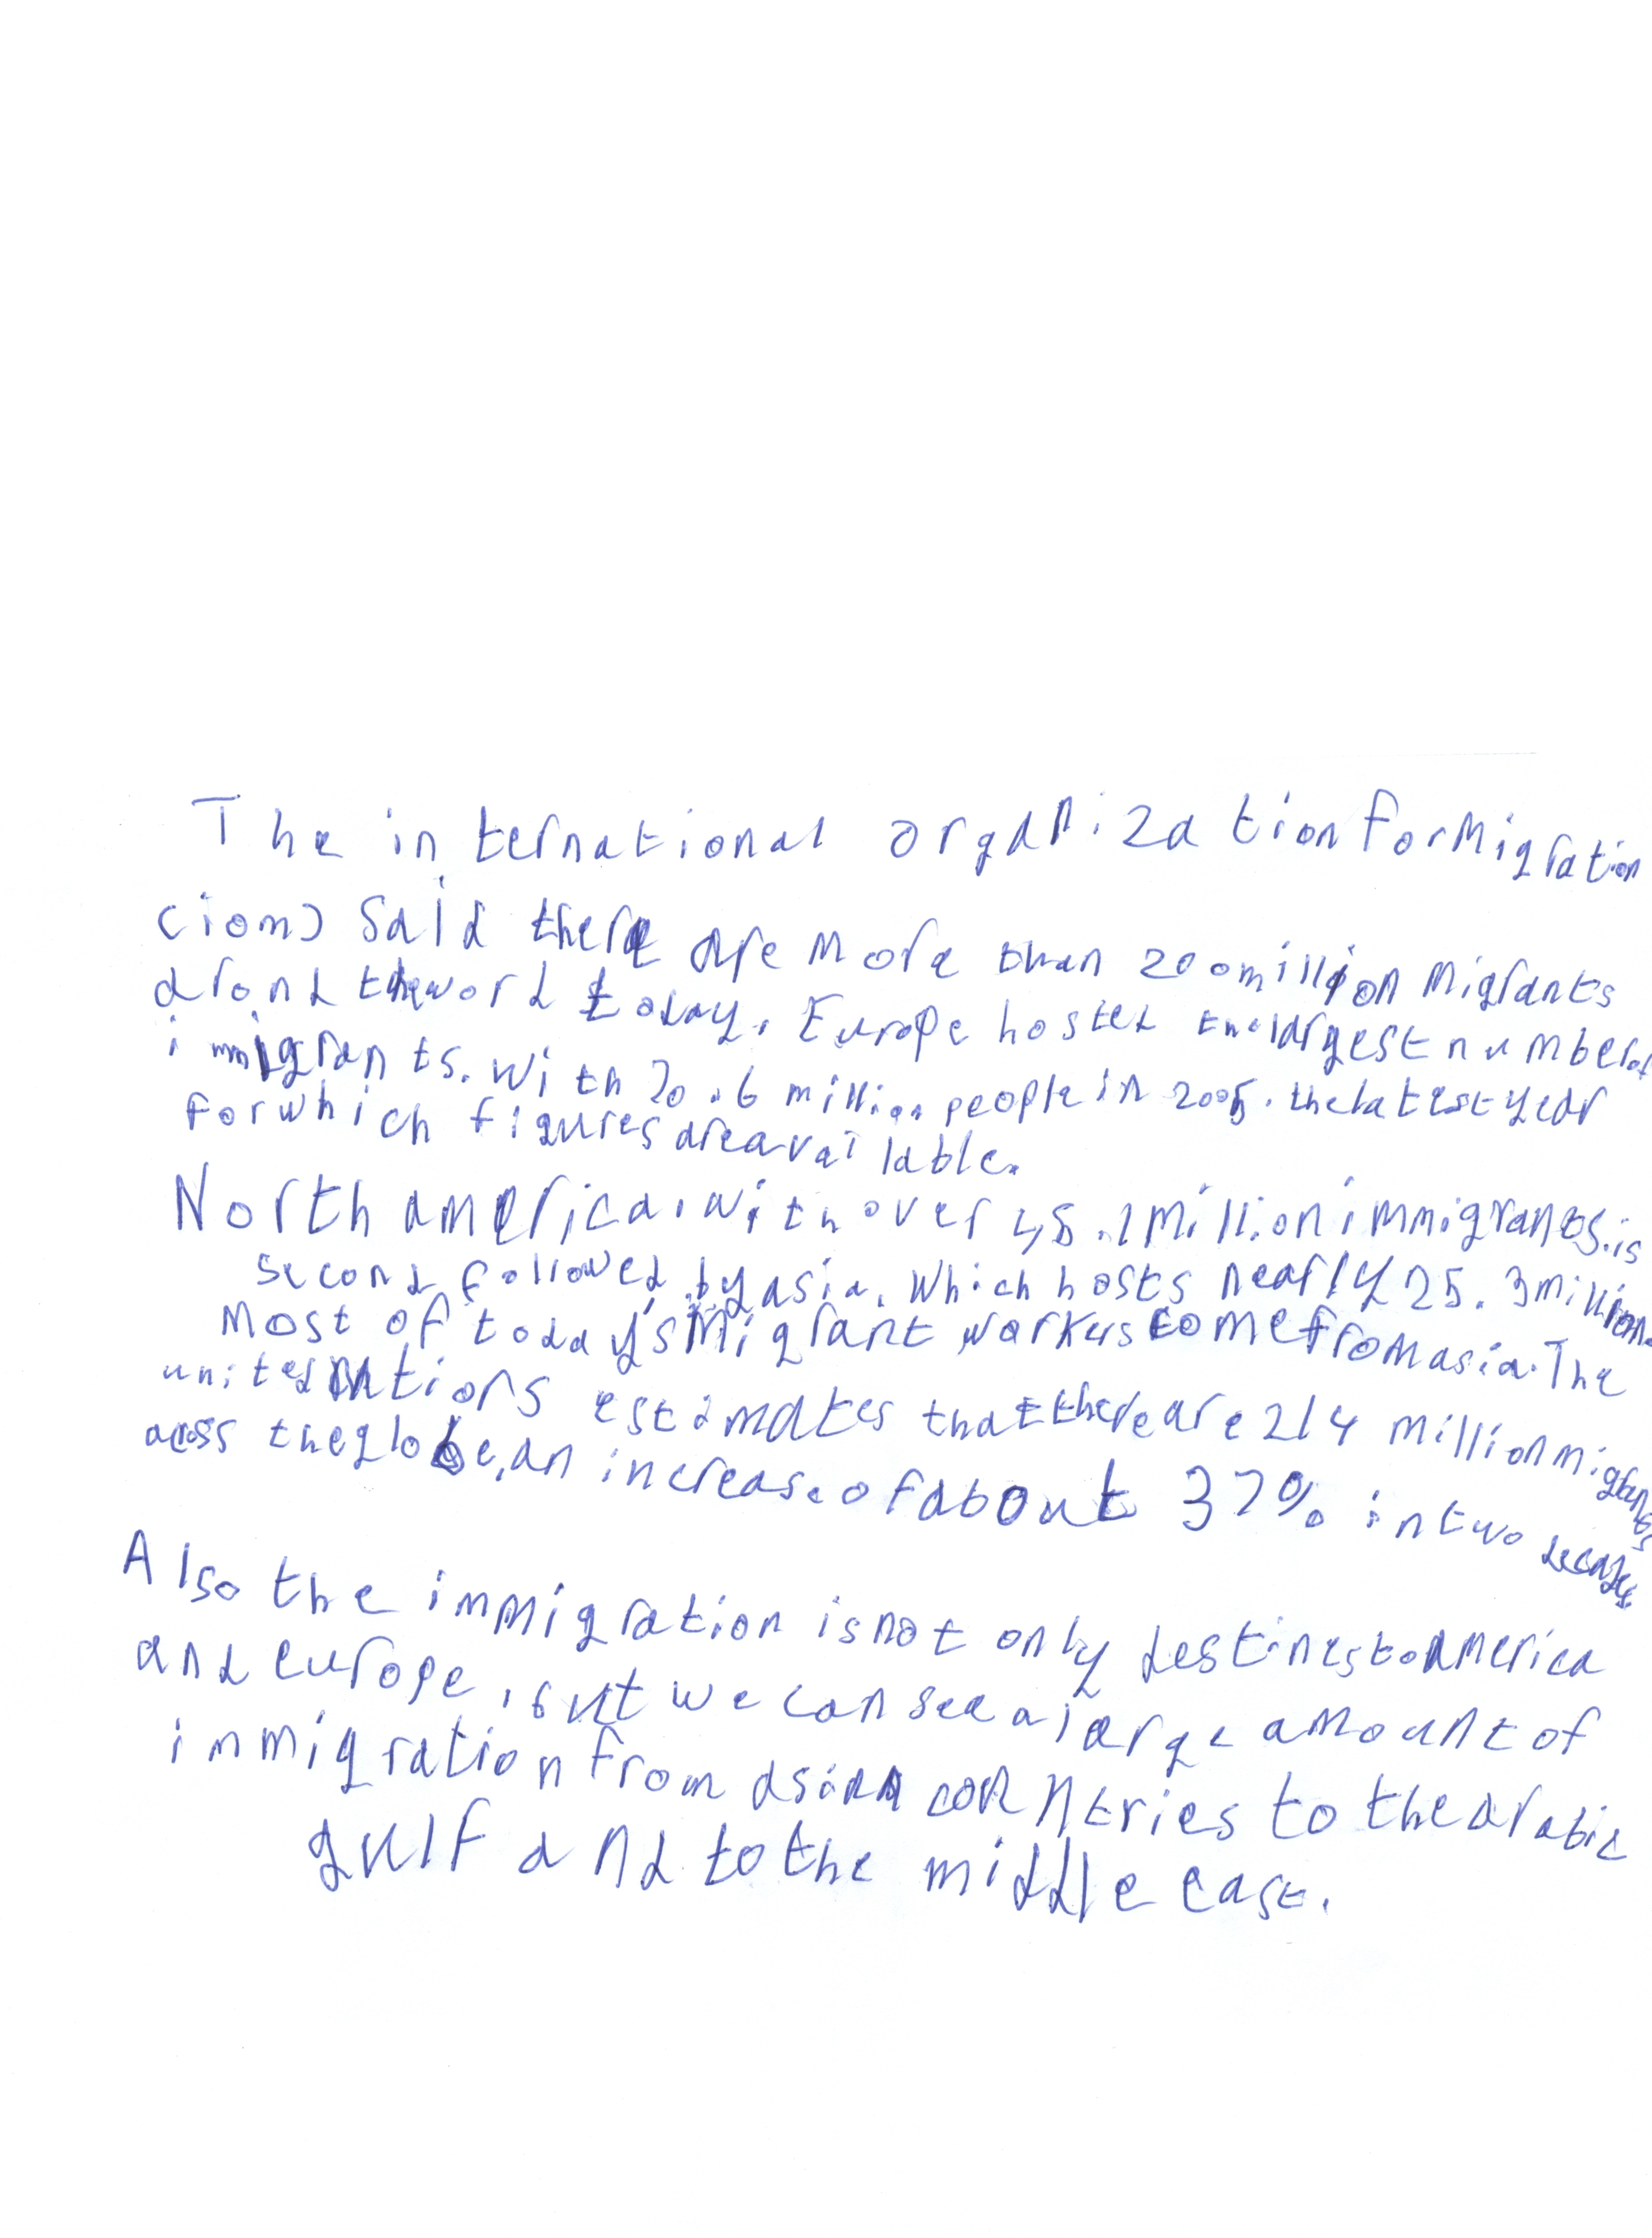 The international organization for Migration
(iom) Said there are More than 200 million Migrants
arond the word today, Europe hosted the largest number of
immigrants. With 70.6 million people in 2005. the latest year
for which figures are available.
North america, with over 45.1 Million immigrants. is
second followed by asia, Which hosts nearly 25.3 million.
Most of today's Migrant workers come from asia. The
united nations estimates that there are 214 million migrants
across the globe, an increase of about 37% in two decades
Also the immigration is not only destines to America
and europe, but we can see a large amount of
immigration from asian contries to the arabic
gulf and to the middle east.